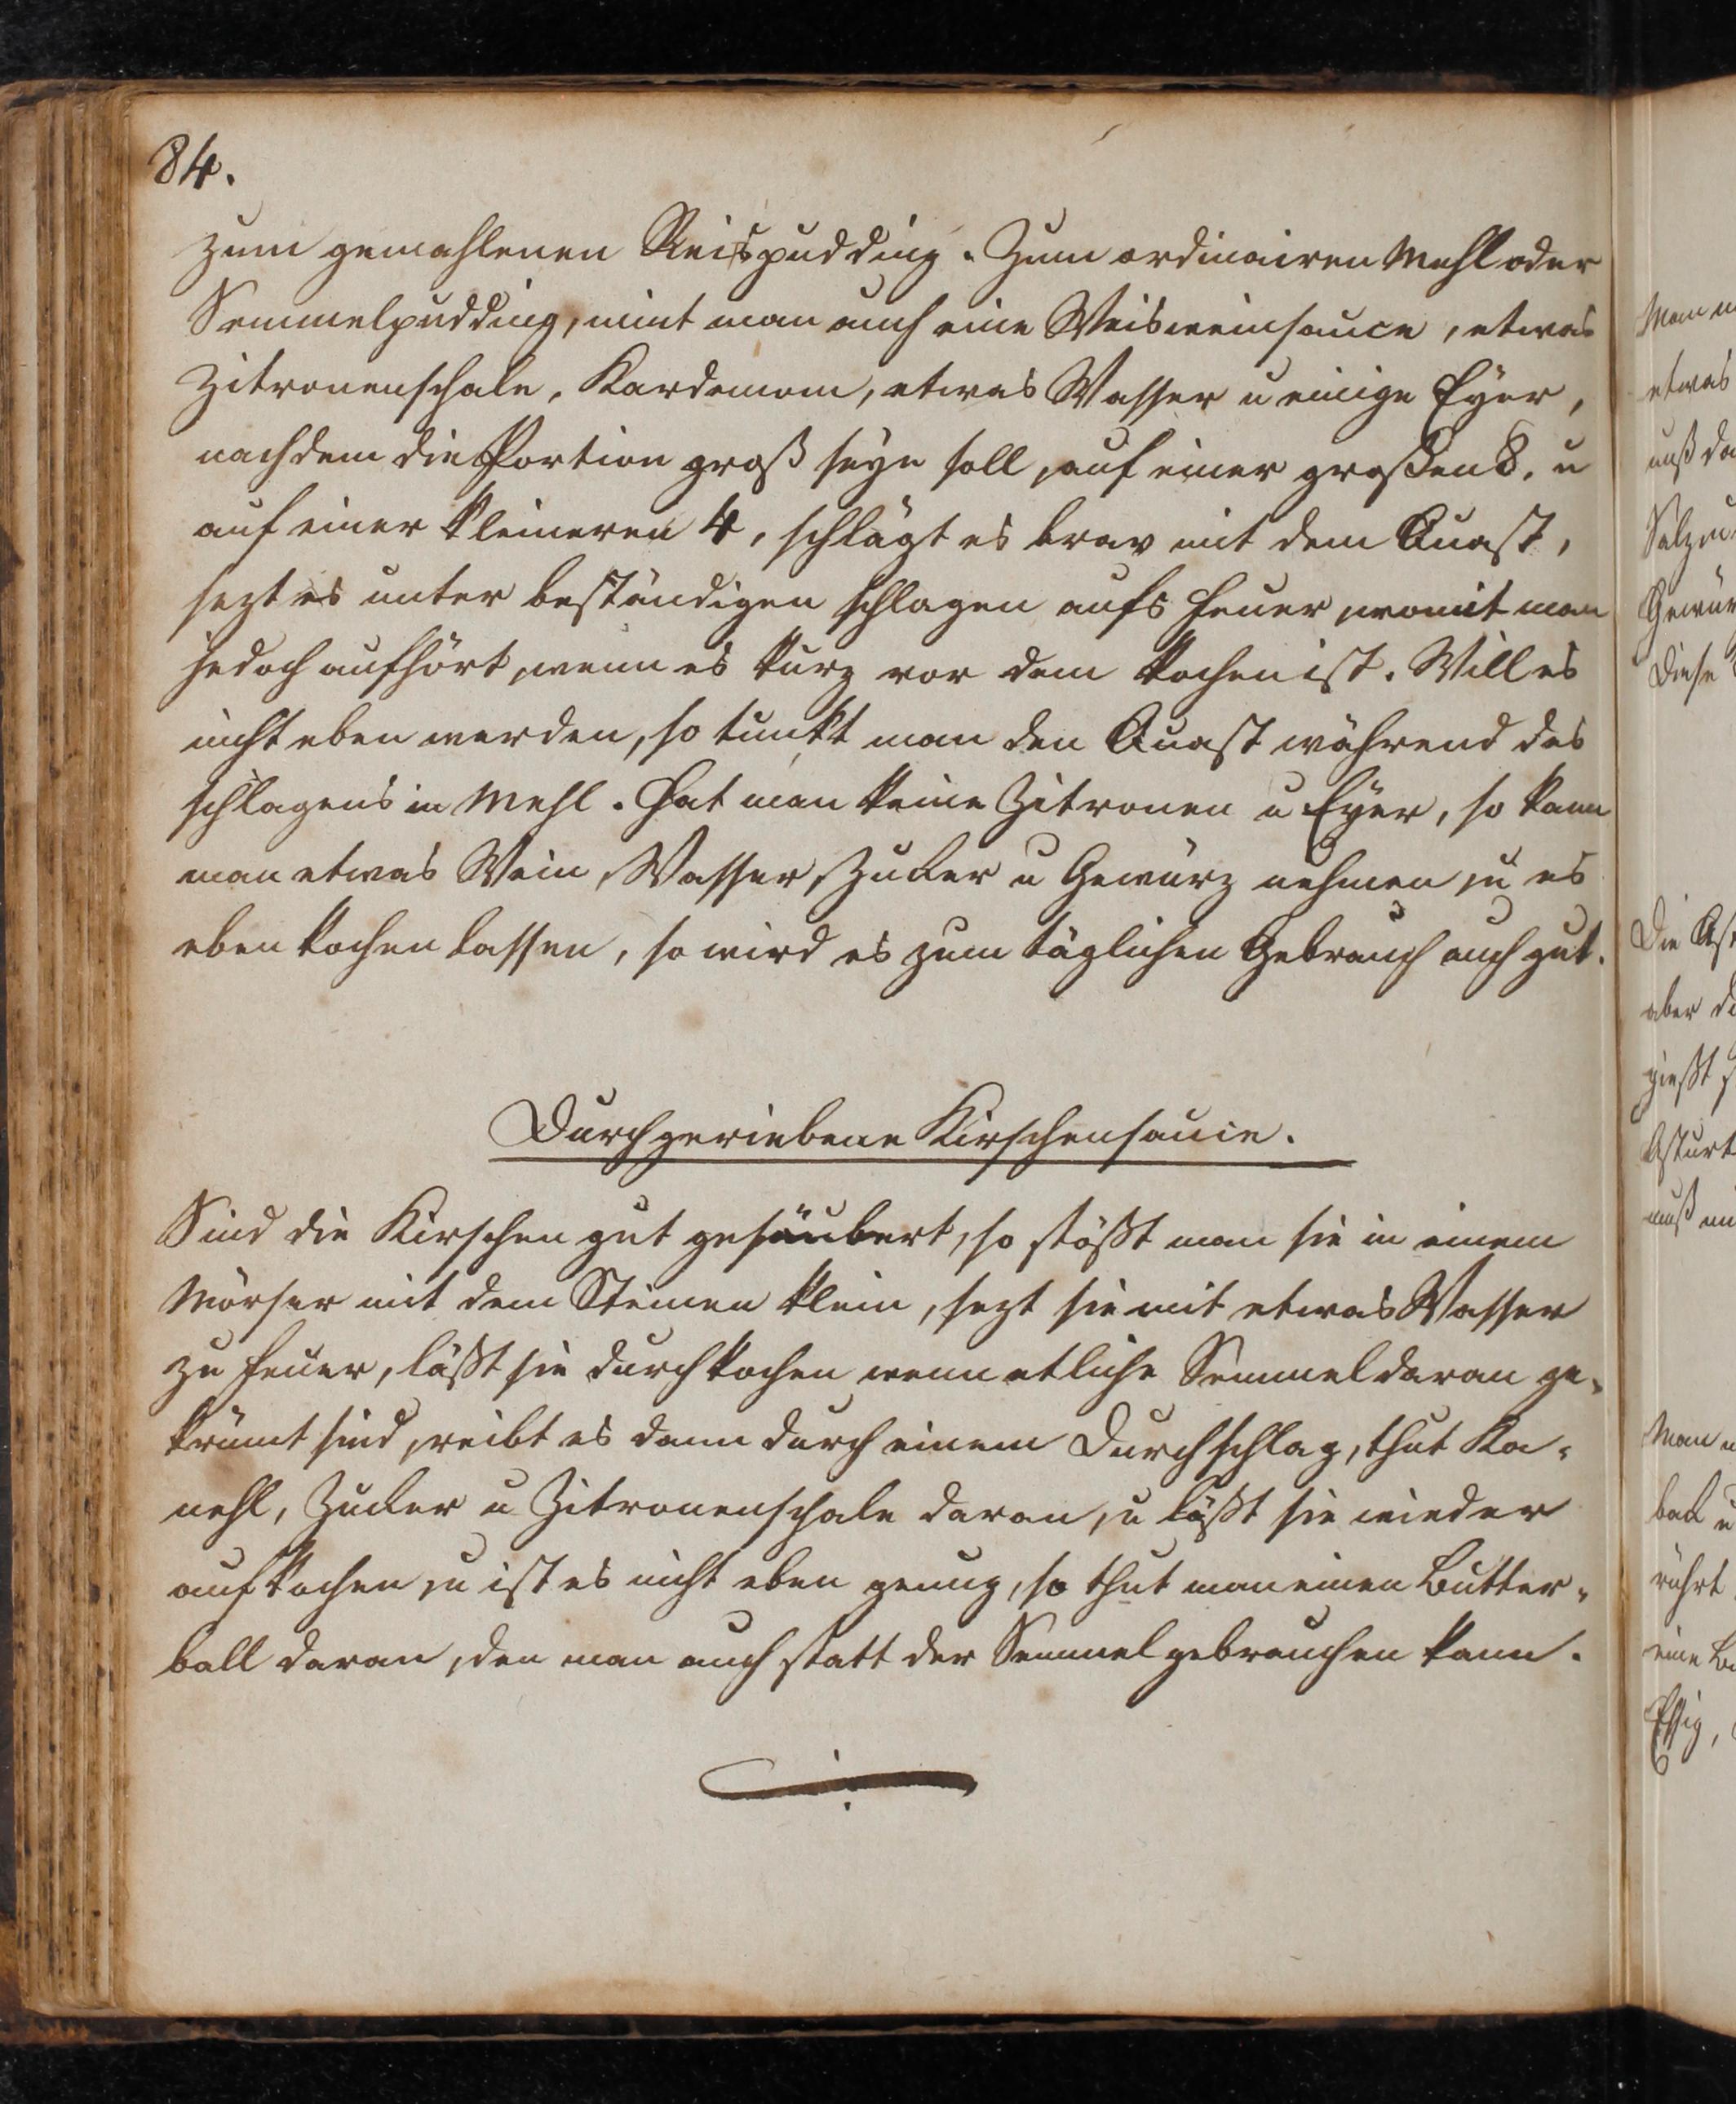 84.
zum gemahlenen Reispudding. Zum ordinairen Mehl oder
Semmelpudding, nimt man auch eine Weisweinsauce, etwas
Zitronenschale, Kardemom, etwas Wasser u einige Eyer,
nachdem die Portion groß seyn soll, auf einer großen 8, u
auf einer kleineren 4, schlägt es brav mit dem Quast,
sezt es unter beständigen schlagen aufs Feuer, womit man
jedoch aufhört, wenn es kurz vor dem kochen ist. Will es
nicht eben werden, so tunkt man den Quast während des
schlagens in Mehl. Hat man keine Zitronen u Eyer, so kann
man etwas Wein, Wasser, Zucker u Gewürz nehmen, u es
eben kochen lassen, so wird es zum täglichen Gebrauch auch gut.
Durchgeriebene Kirschensauce.
Sind die Kirschen gut gesäubert, so stößt man sie in einem
Mörser mit dem Steinen klein, sezt sie mit etwas Wasser
zu Feuer, läßt sie durchkochen wenn etliche Semmel daran ge-
krümt sind, reibt es dann durch einem Durchschlag, thut Ka-
nehl, Zucker u Zitronenschale daran, u läßt sie wieder
aufkochen, u ist es nicht eben genug, so thut man einen Butter-
ball daran, den man auch statt der Semmel gebrauchen kann.
Man
etwas
muß
Salz
Gewür
Diese
Die
aber
gießt
muß
Man
rührt
eine
Essig,